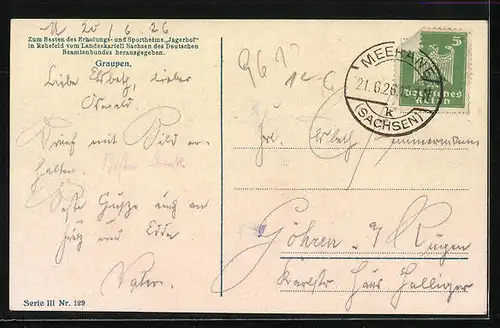 20/6.26
Zum Besten des Erholungs- und Sportheims „Jägerhof"
in Rehefeld vom Landeskartell Sachsen des Deutschen
Beamtenbundes herausgegeben.
Graupen.
Liebe Elsbeth, lieber
Oswald.
Brief mit Bild er-
halten. Besten Dank
Beste Grüße auch an
und
Vater.
Serie III Nr. 129
MEERANE
21.6.26
k
(SACHSEN)
5
Deutsches
Reich
Frl. Elsbeth Zimmermann
Göhren a/ Rügen
Haus